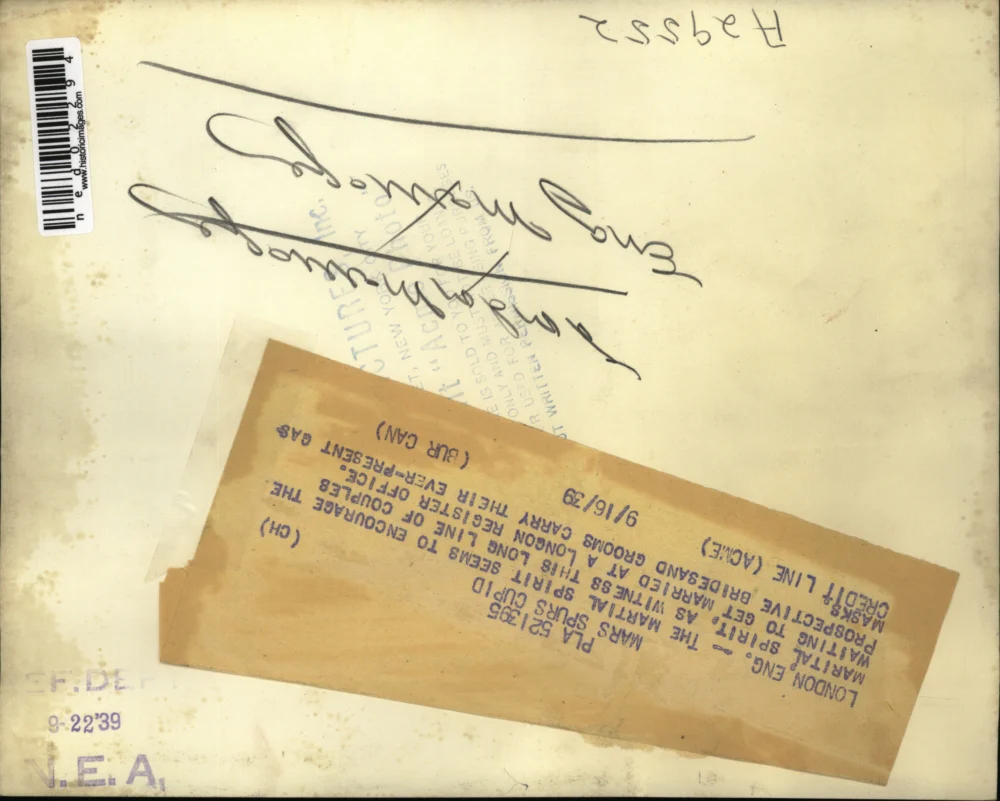 A29552
Eng Marriage
London Marriage
PLA 521395
MARS SPURS CUPID
(CH)
LONDON, ENG. -- THE MARTIAL SPIRIT SEEMS TO ENCOURAGE THE
MARITAL SPIRIT, AS WITNESS THIS LONG LINE OF COUPLES
WAITING TO GET MARRIED AT A LONGON REGISTER OFFICE.
PROSPECTIVE BRIDESAND GROOMS CARRY THEIR EVER-PRESENT GAS
MASKS.
CREDIT LINE (ACME)
9/16/39
(BUR CAN)
CTURES, Inc.
ET, NEW YORK CITY
it "ACME Photo"
E IS SOLD TO YOU FOR YOUR
ONLY AND MUST
R USED FOR
T WRITTEN FROM
EF. DE
9-22'39
N.E.A.
ned022294
www.historicimages.com